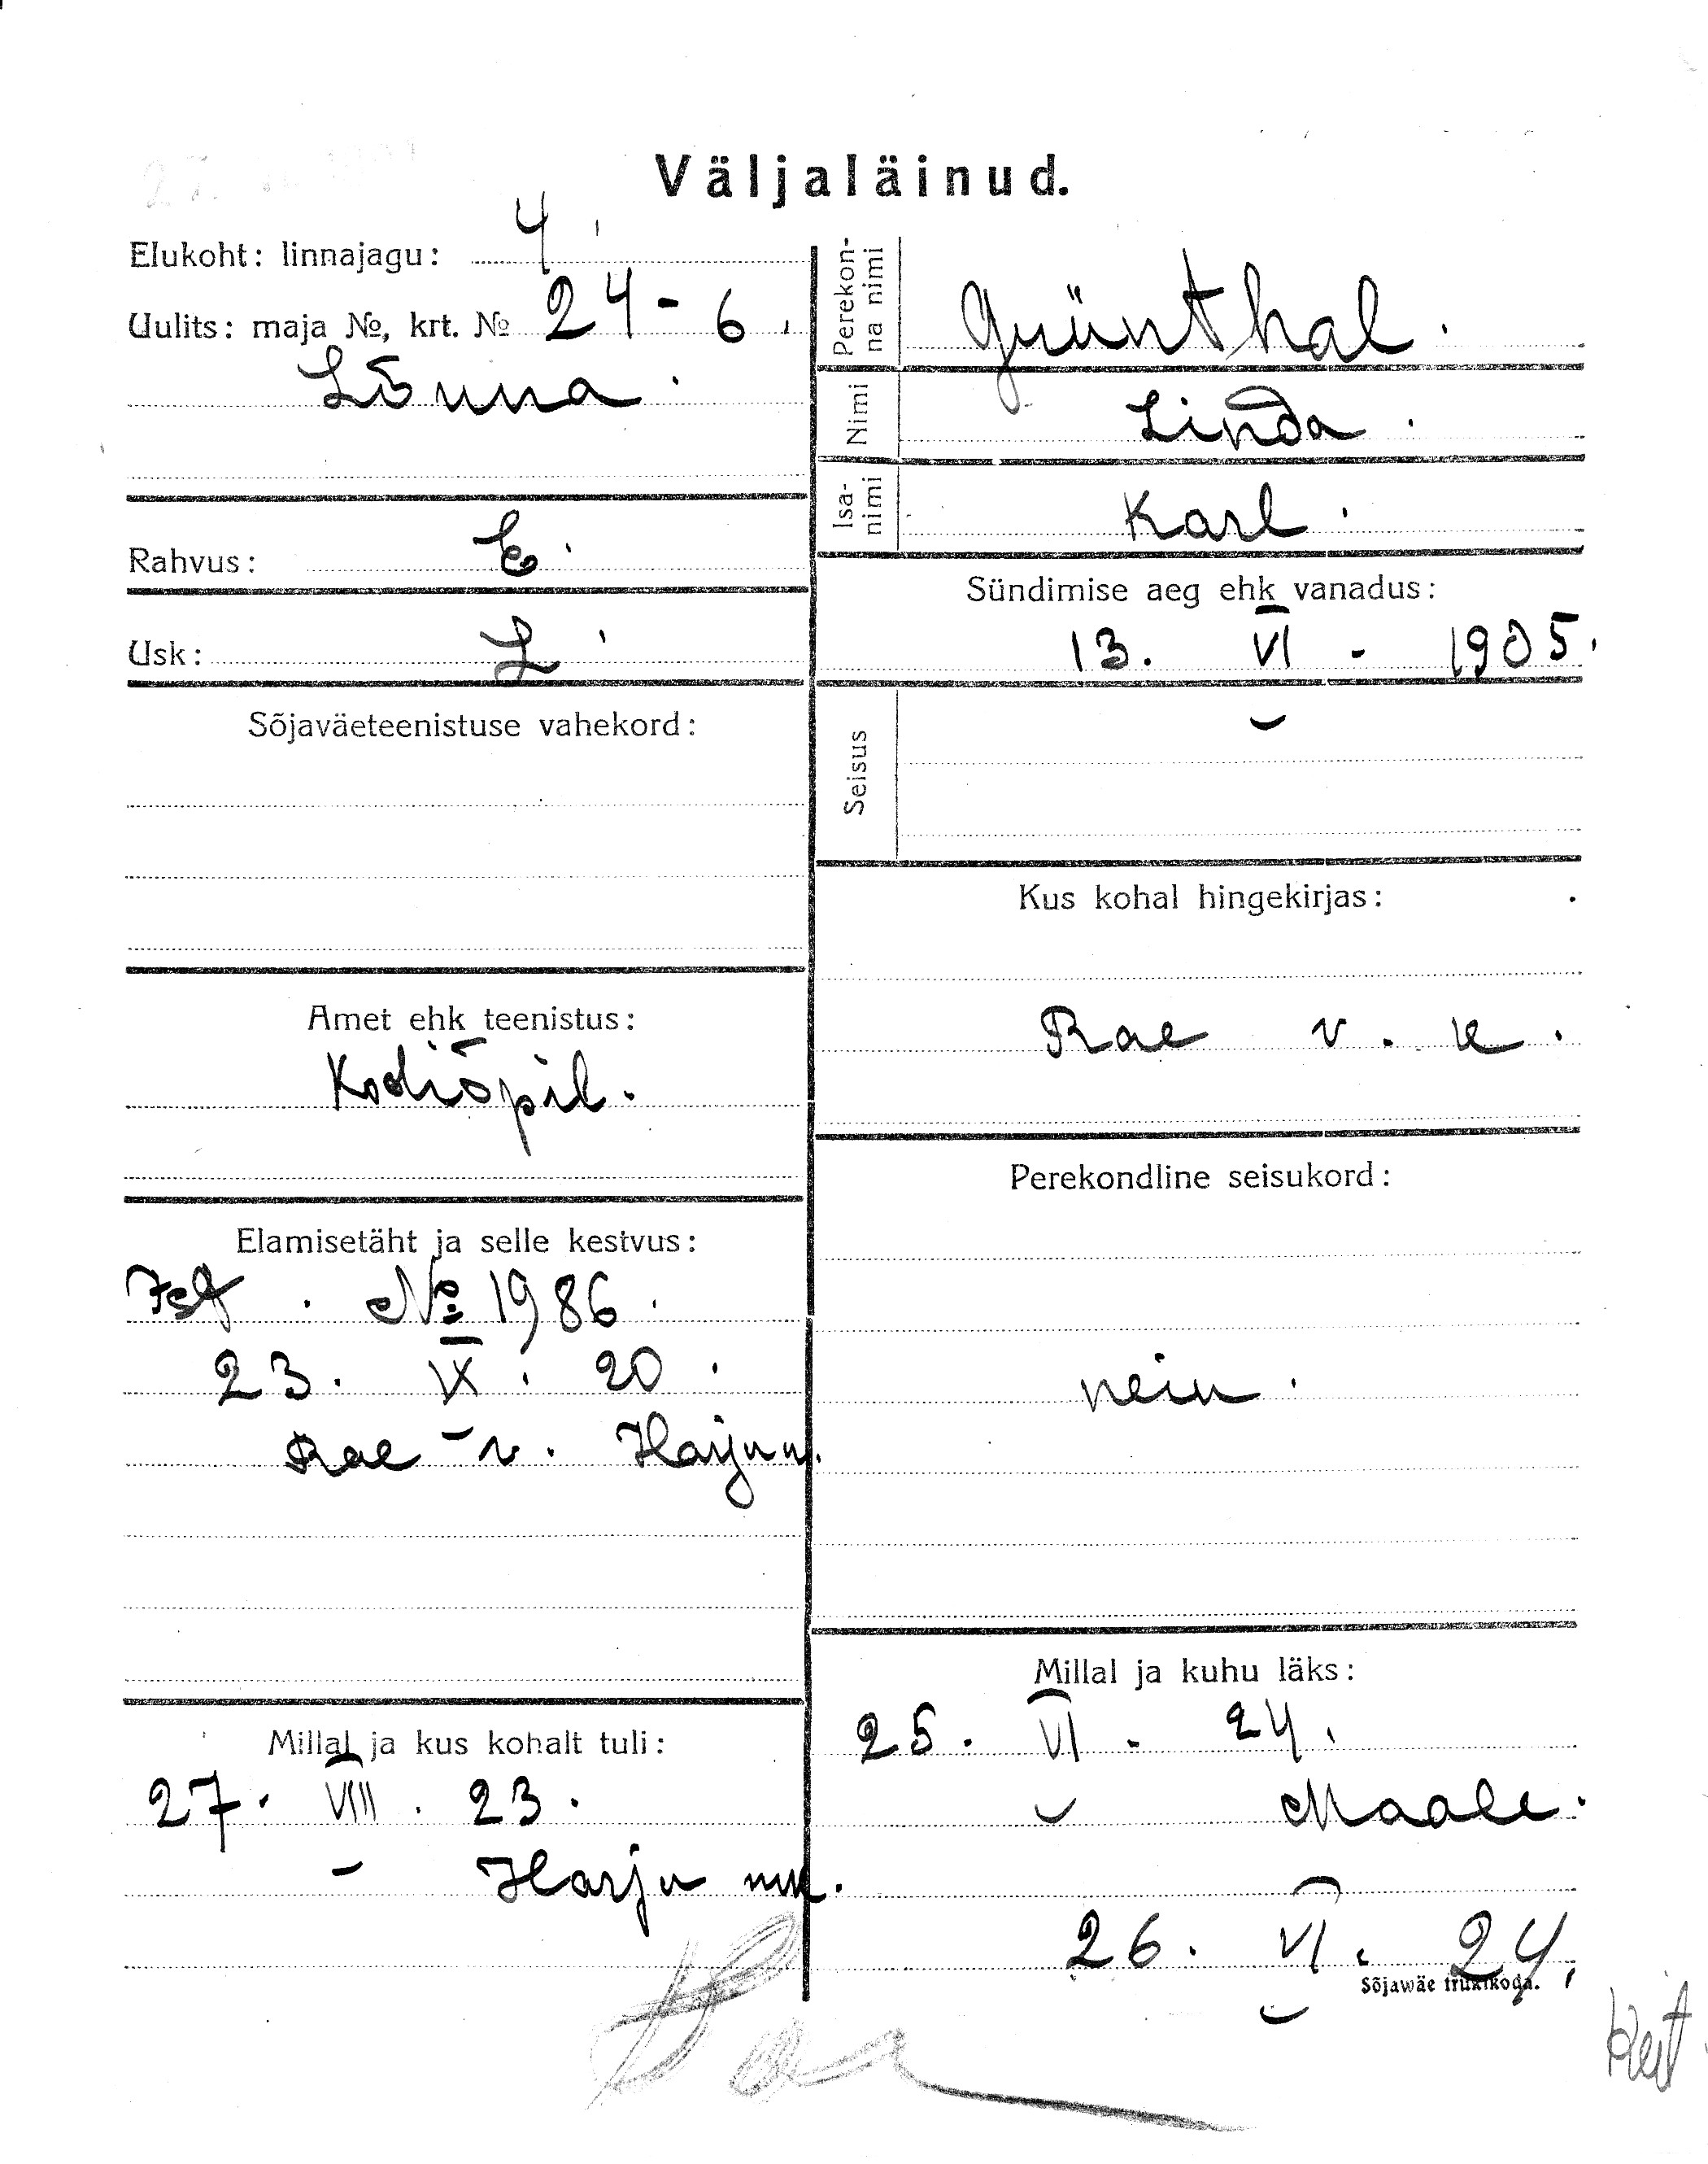 Väljaläinud.
Elukoht: linnajagu: 4.
Uulits: maja №, krt. № 24-6.
Lõuna.
Rahvus: E.
Usk: L.
Sõjaväeteenistuse vahekord:
Amet ehk teenistus:
Kodiõpil.
Elamisetäht ja selle kestvus:
Ist. № 1986.
23. IX. 20.
Rae v. Harjum.
Millal ja kus kohalt tuli:
27. VIII. 23.
- Harju mk.
Perekonna nimi
Grünthal.
Nimi
Linda.
Isanimi
Karl.
Sündimise aeg ehk vanadus:
13. VI - 1905.
Seisus
Kus kohal hingekirjas:
Rae v. k.
Perekondline seisukord:
nein.
Millal ja kuhu läks:
25. VI. 24.
Maale.
26. VI. 24.
Sõjawäe trükikoda.